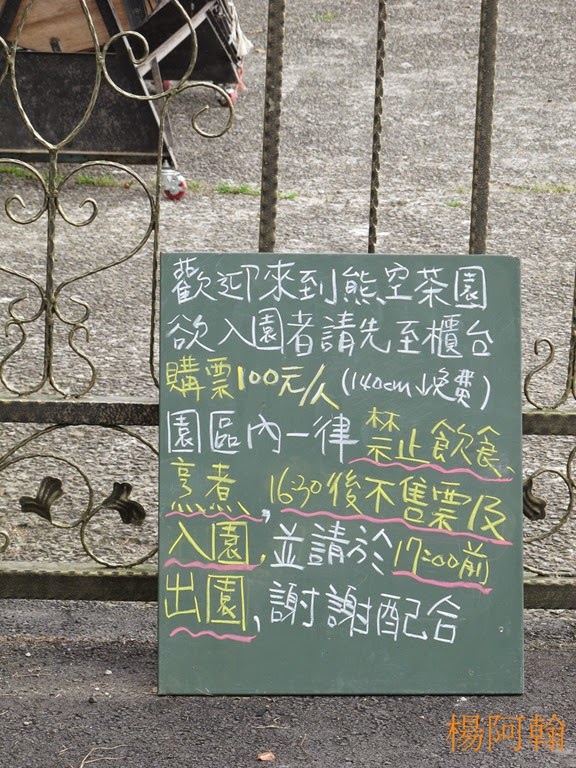 歡迎來到熊空茶園
欲入園者請先至櫃台
購票100元/人(140cm↓免費)
園區內一律禁止飲食、
烹煮,16:30後不售票及
入園,並請於17:00前
出園,謝謝配合
楊阿翰